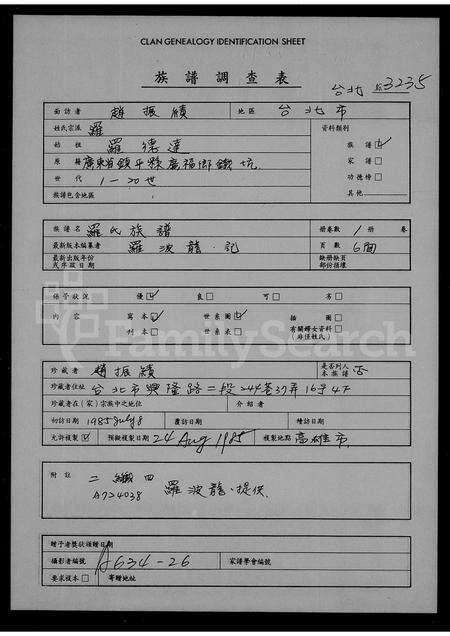 CLAN GENEALOGY IDENTIFICATION SHEET
族譜調查表
台北 3235
面訪者 趙振績 地區 台北市
姓氏宗派 羅 資料類別
始祖 羅德達 族譜☑
原籍 廣東省鎮平縣廣福鄉鐵坑 家譜□
世代 1-20世 功德榜□
族譜包含地區 其他
族譜名 羅氏族譜 冊卷數 1 冊 卷
最新版本編纂者 羅波龍·記 頁數 6面
最新出版年份或年版日期 缺冊缺頁部份損壞
保守狀況 優☑ 良□ 可□ 劣□
內容 寫本☑ 世系圖☑ 插圖□
刊本□ 世系表□ 有關婦女資料(非僅姓氏)□
FamilySearch
珍藏者 趙振績 是否列入本族譜 否
珍藏者住址 台北市興隆路二段244巷37弄16号4F
珍藏者在(家)宗族中之地位 介紹者
初訪日期 1985 July 8 覆訪日期 續訪日期
允許複製☑ 預擬複製日期 24 Aug 1985 複製地點 高雄市
附註 二 四
A724038 羅波龍·提供
贈予者獎狀頒贈日期
攝影者編號 A634-26 家譜學會編號
要求複本□ 寄贈地址